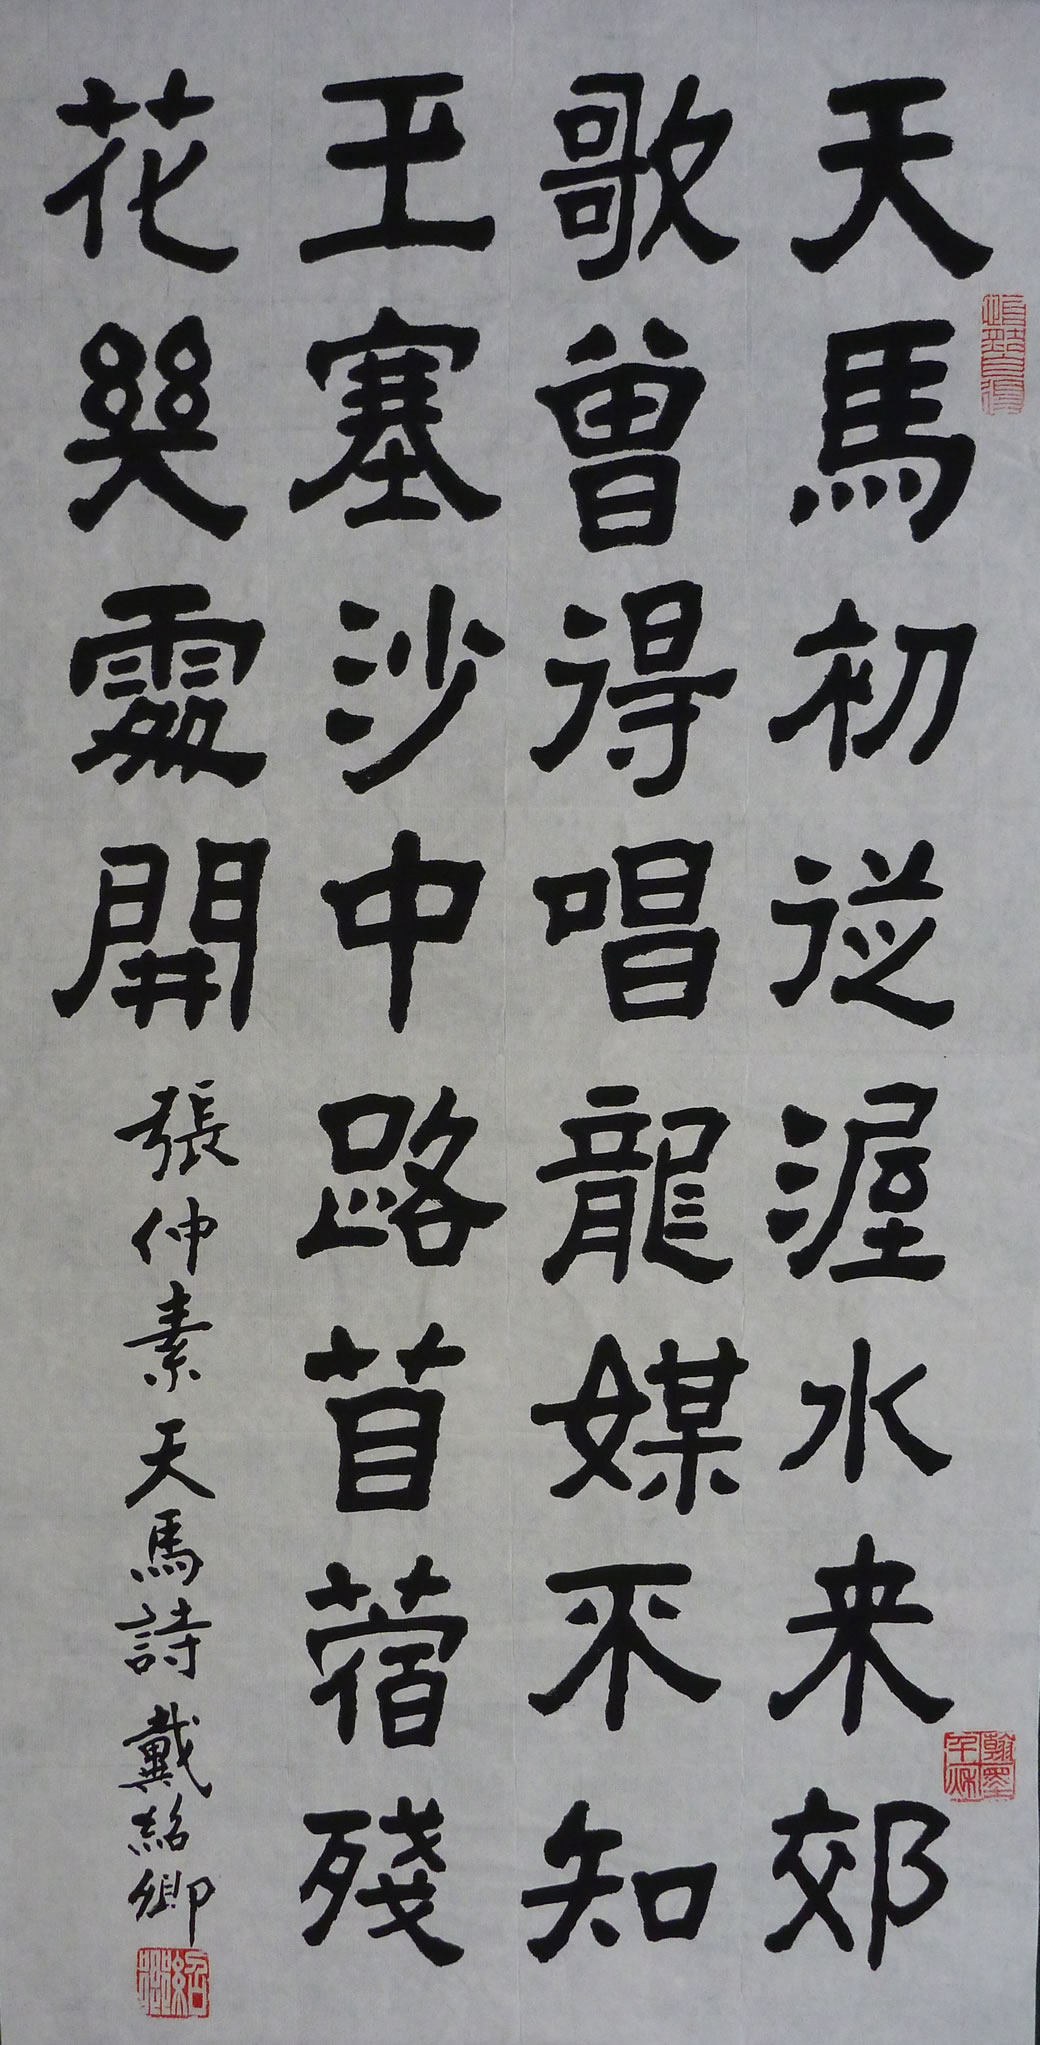 天馬初從渥水来郊
歌曾得唱龍媒不知
玉塞沙中路苜蓿殘
花幾處開
張仲素天馬詩 戴紹卿
翰墨千秋
紹卿